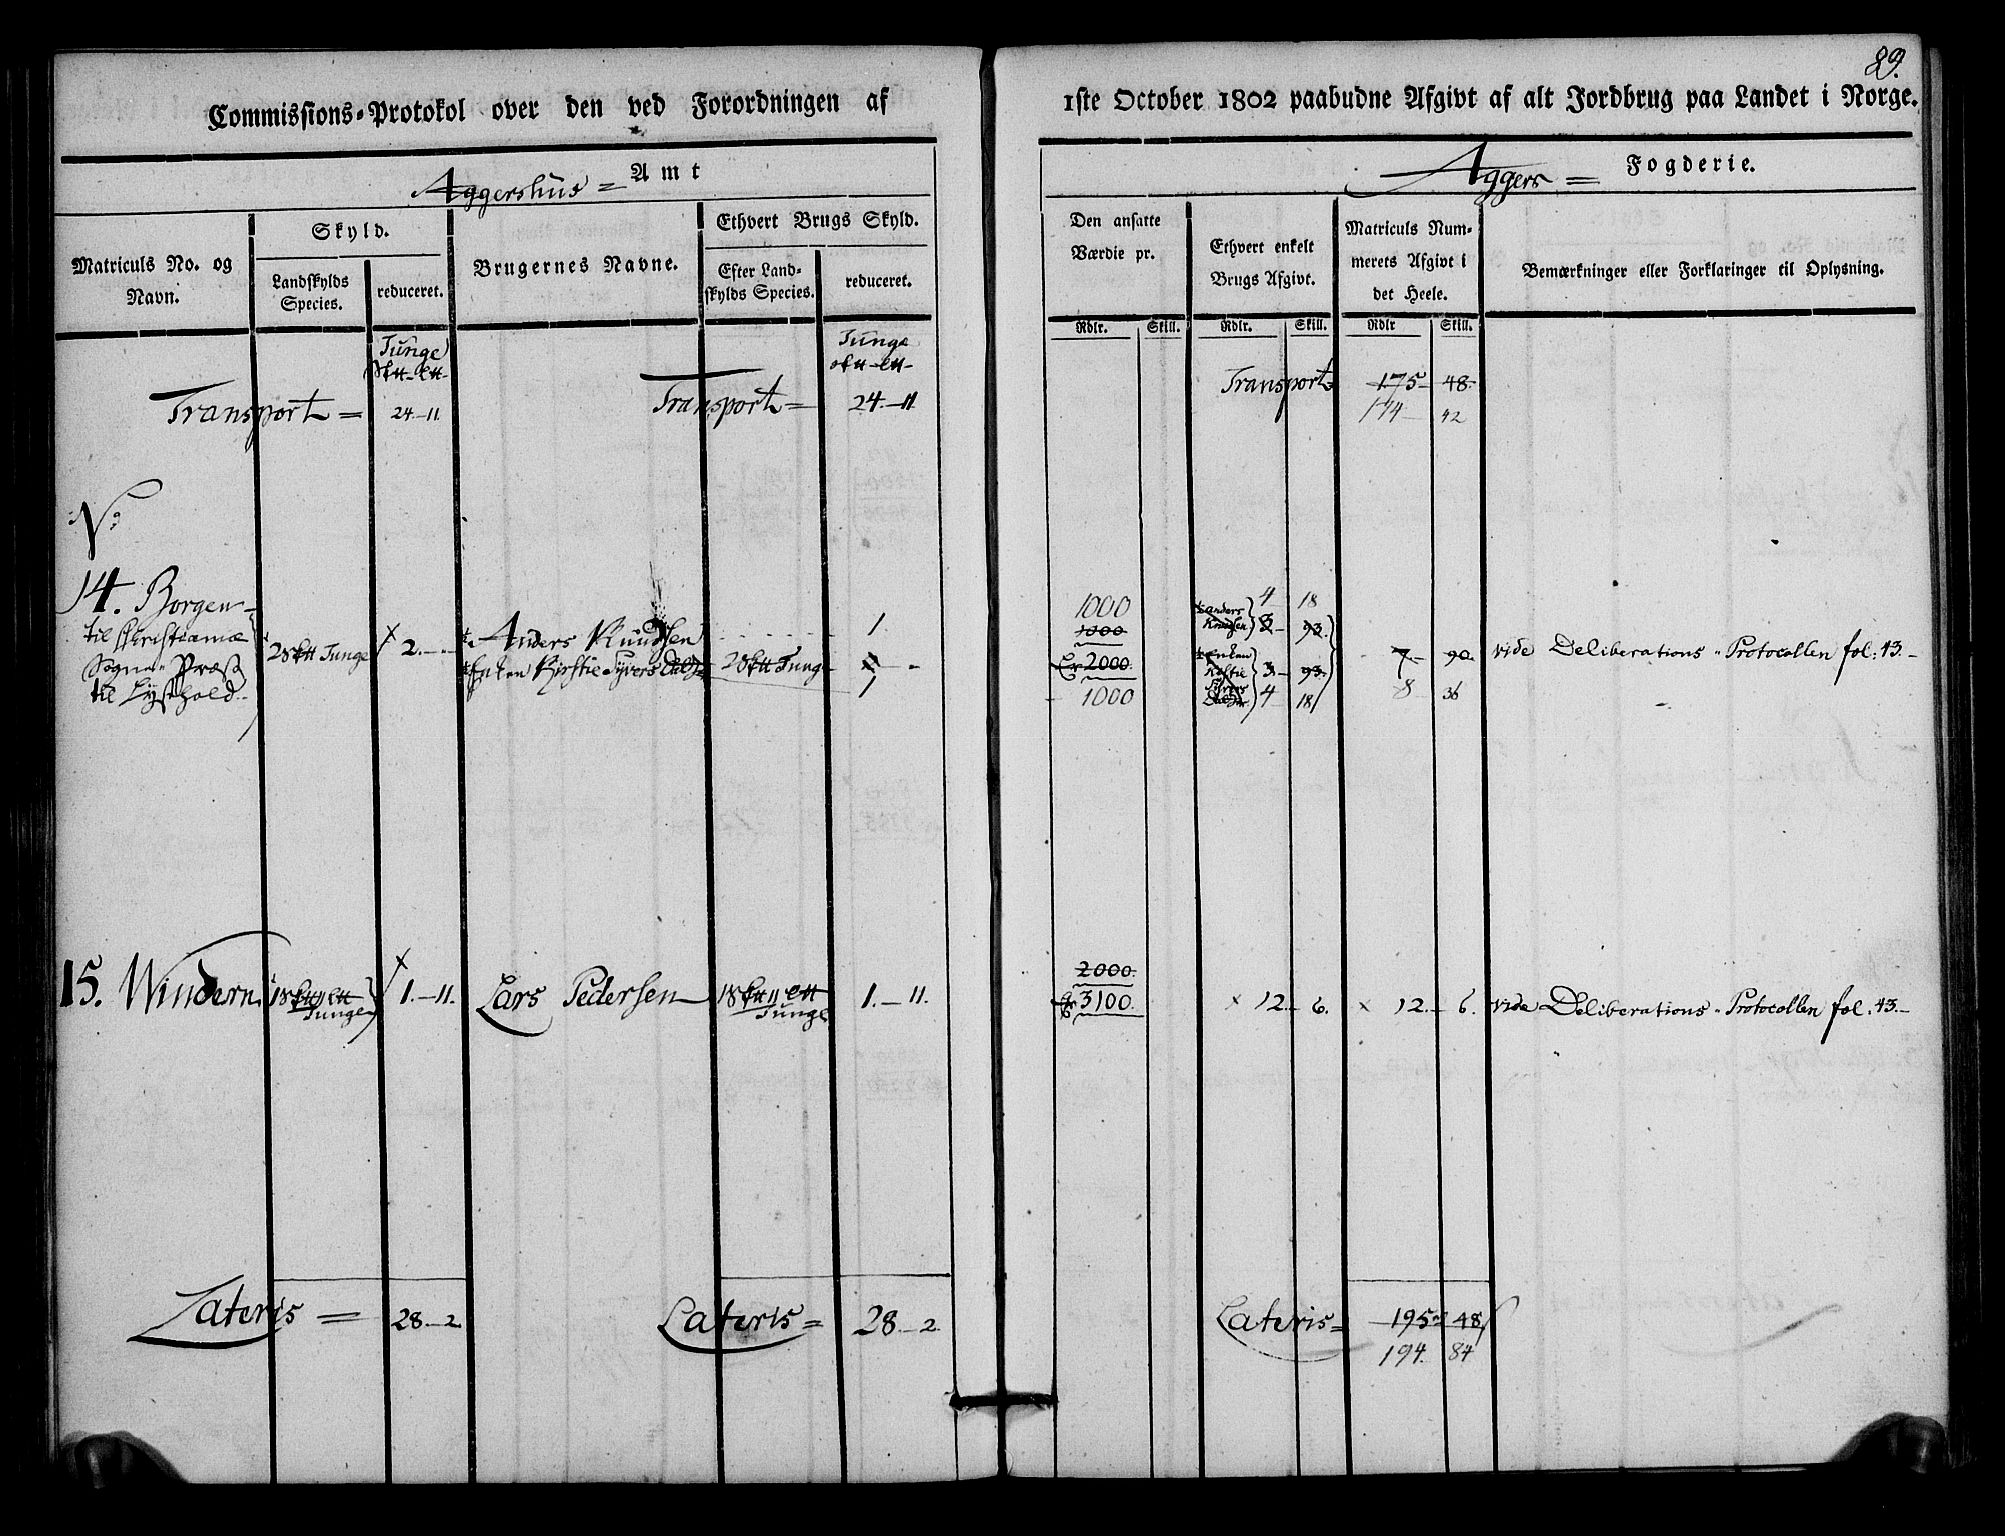 89.
Commissions-Protokol over den ved Forordningen af 1ste October 1802 paabudne Afgivt af alt Jordbrug paa Landet i Norge.
Aggershus = Amt
Aggers = Fogderie.
Matriculs No. og Navn.
Skyld.
Landskylds Species.
reduceret.
Brugernes Navne.
Ethvert Brugs Skyld.
Efter Landskylds Species.
reduceret.
Den ansatte Værdie pr.
Ethvert enkelt Brugs Afgivt.
Matriculs Nummerets Afgivt i det Heele.
Bemærkninger eller Forklaringer til Oplysning.
Rdlr. Skill. Rdlr. Skill. Rdlr Skill.
Tunge
Tunge
Transport = 24 - 11 Transport = 24 - 11 Transport 175 - 48 -
174 - 42
No
14. Borgen
til Christiania
Sogne-Præst
til Lysthold
2 Tunge 2. -
½ Anders Knudsen 1
½ Enken Kirstie Syvers 2 Tunge
1
1000
1000
Er 2000.
1000
½ Anders Knudsen 4 18
3 - 93.
½ Enken Kirstie Syvers 3 - 93.
4 18
7 - 90.
8 36
vide Deliberations-Protocollen fol: 43. -
15. Windern 1 Tunge 1. - 11. Lars Pedersen 1 Tunge 1. - 11.
2000.
Er 3100.
12. - 6. 12. - 6. vide Deliberations-Protocollen fol: 43. -
Lateris = 28. - 2 Lateris = 28. - 2. Lateris = 195 - 48
194. 84